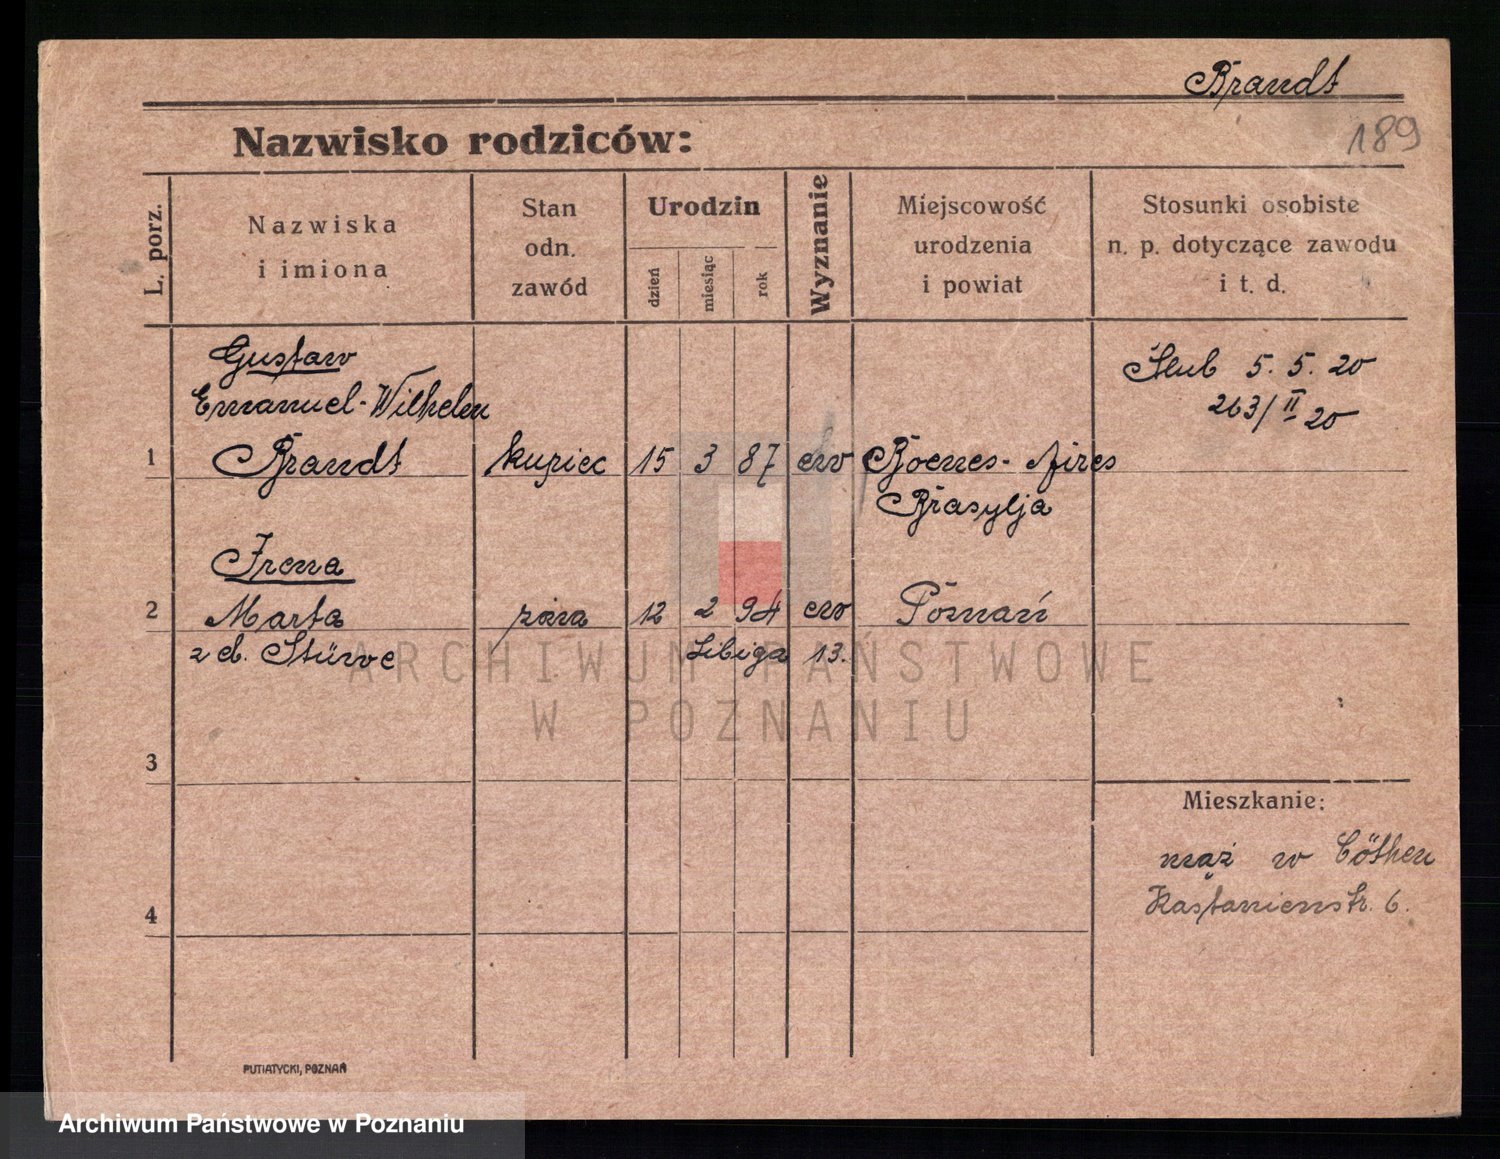 Brandt
189
Nazwisko rodziców:
L. porz.
Nazwiska
i imiona
Stan
odn.
zawód
Urodzin
dzień
miesiąc
rok
Wyznanie
Miejscowość
urodzenia
i powiat
Stosunki osobiste
n. p. dotyczące zawodu
i t. d.
Gustaw
Emanuel-Wilhelm
1 Brandt kupiec 15 3 87 ew Boenes-Aires
Brasylja
Ślub 5. 5. 20
263/II 20
Irena
2 Marta żona 12 2 94 ew Poznań
z d. Stüwe Libiga 13.
ARCHIWUM PAŃSTWOWE
W POZNANIU
3
Mieszkanie:
mąż w Cöthen
Kastanienstr. 6.
4
PUTIATYCKI, POZNAŃ
Archiwum Państwowe w Poznaniu